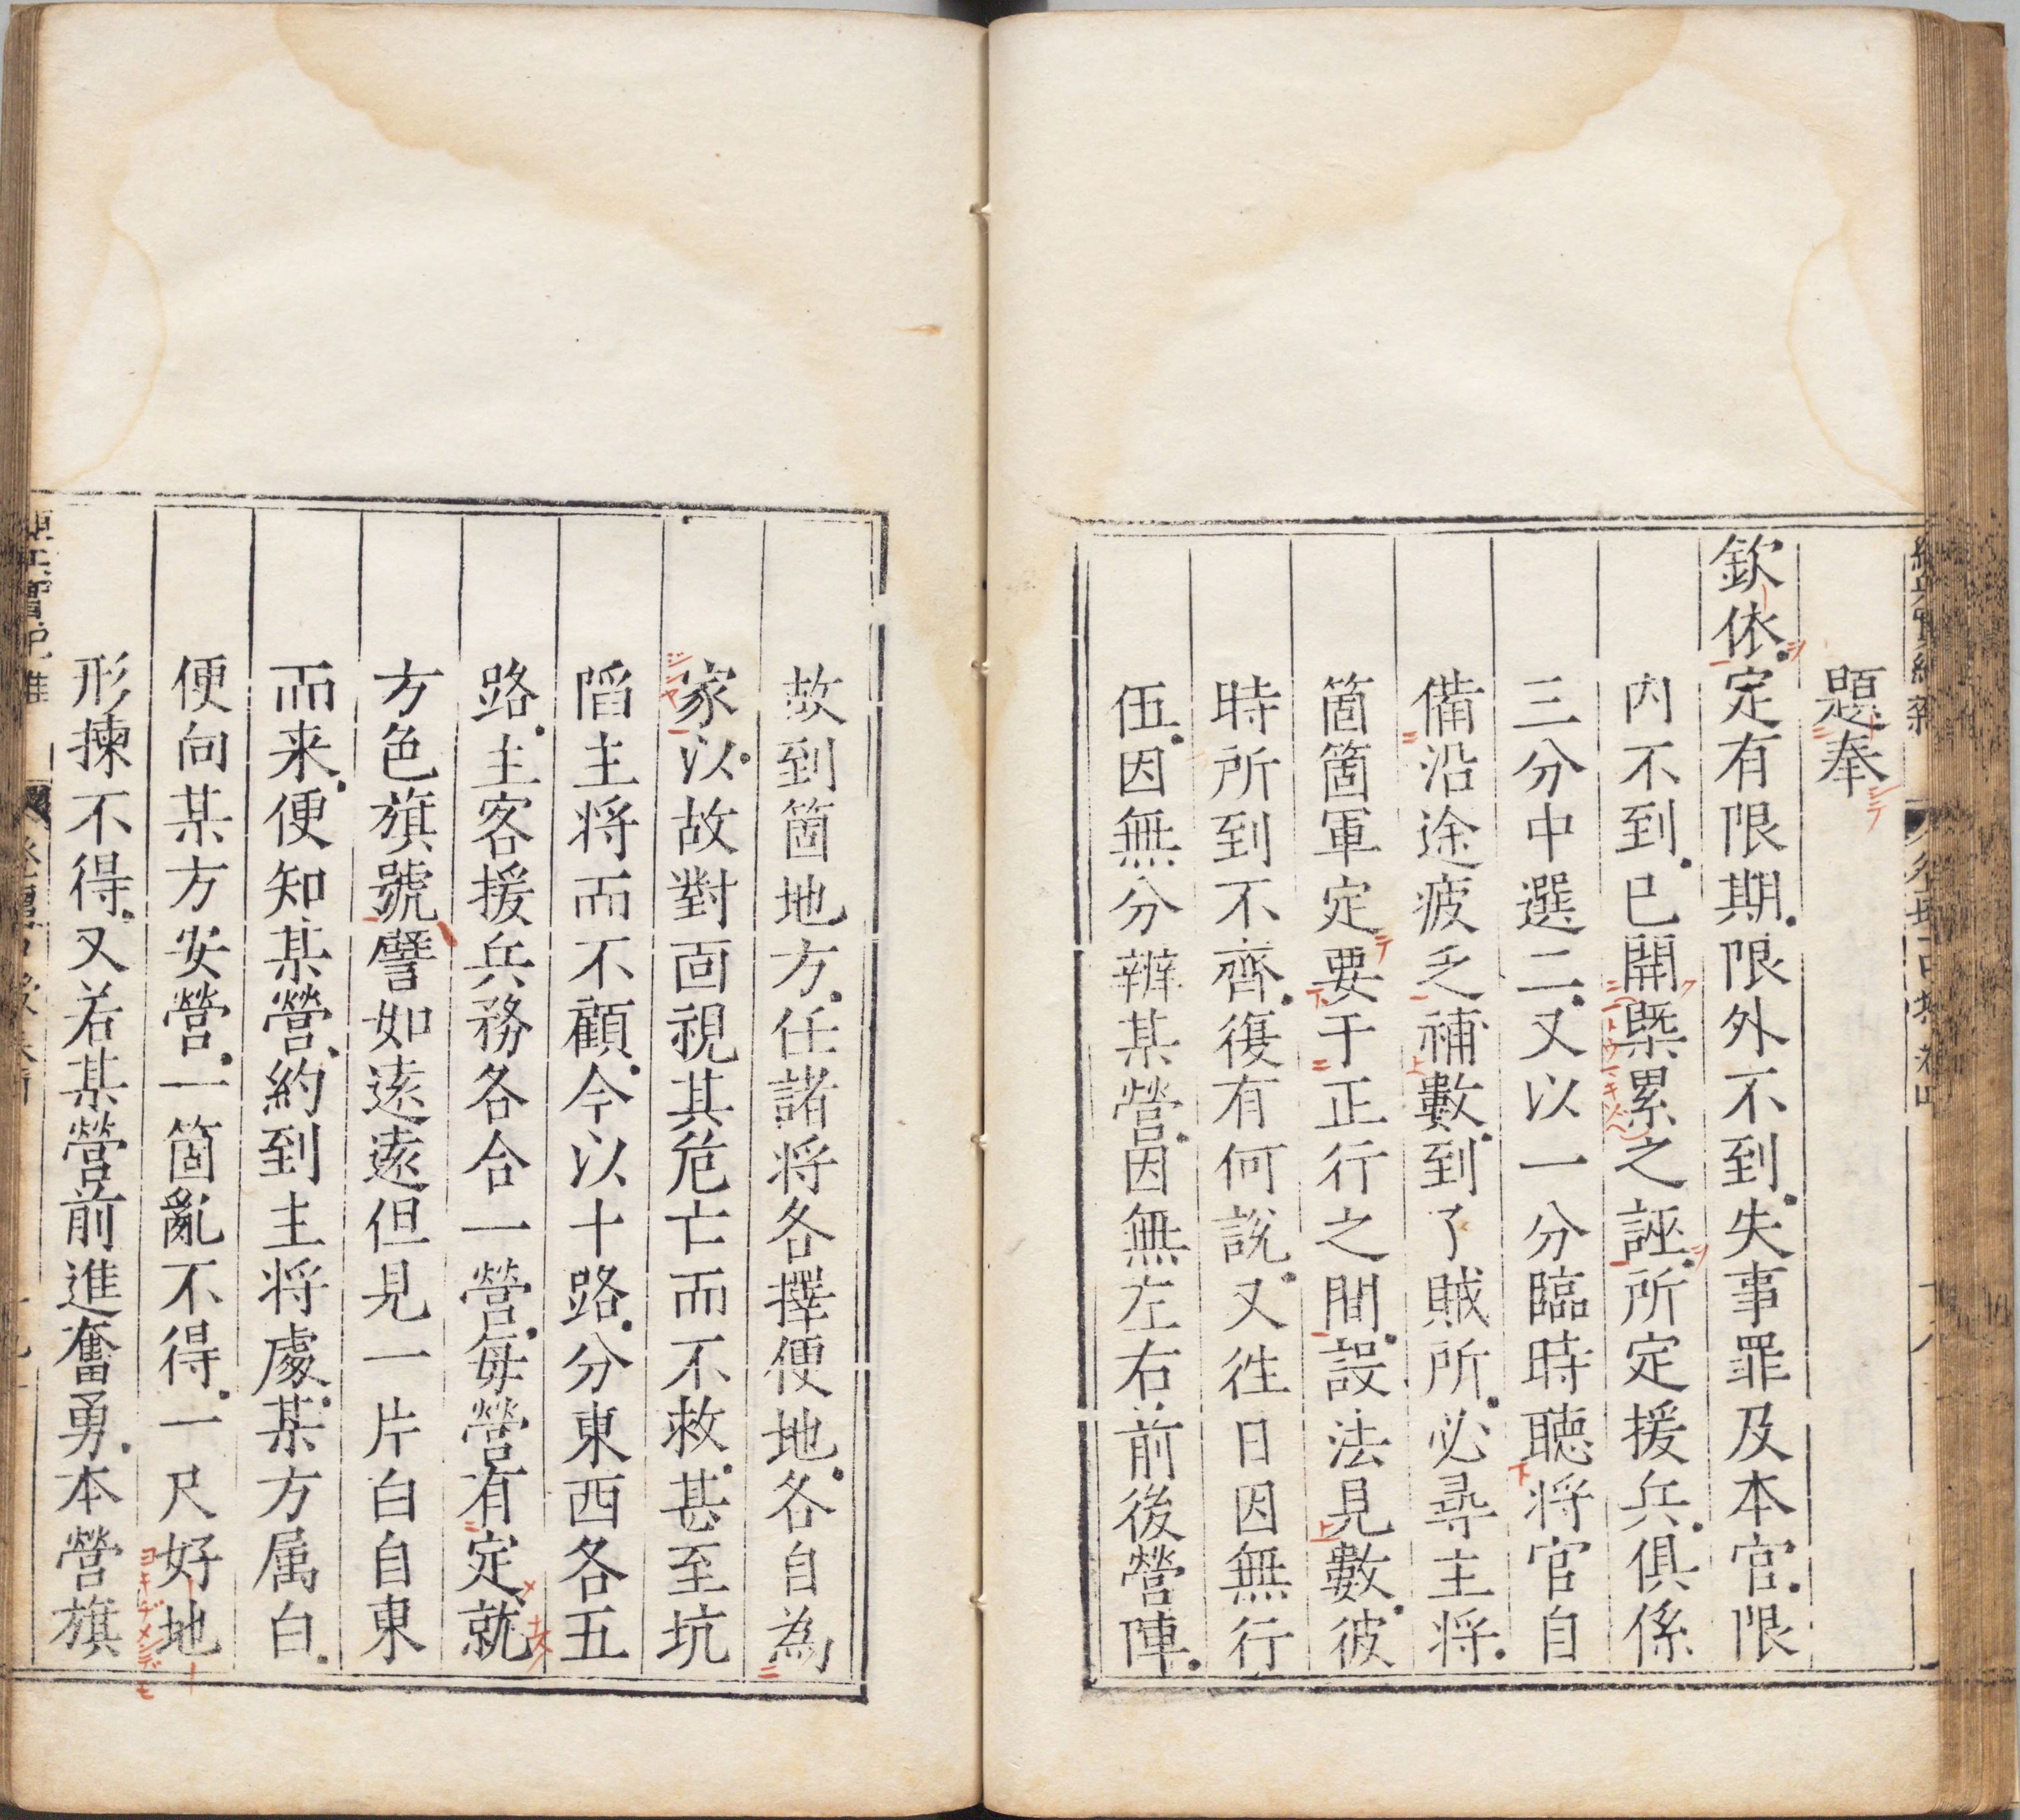 題奉
欽依定有限期限外不到失事罪及本官限
内不到已開槩累之誣所定援兵俱係
三分中選二又以一分臨時聽将官自
備沿途疲乏補數到了賊所必尋主将
箇箇軍定要于正行之間設法見數彼
時所到不齊復有何說又徃日因無行
伍因無分辨某營因無左右前後營陣
故到箇地方任諸将各擇便地各自為
家以故對面視其危亡而不救甚至坑
陷主将而不顧今以十路分東西各五
路主客援兵務各合一營每營有定就
方色旗號譬如遠遠但見一片白自東
而来便知某營約到主将處某方属白
便向某方安營一箇亂不得一尺好地
形揀不得又若某營前進奮勇本營旗